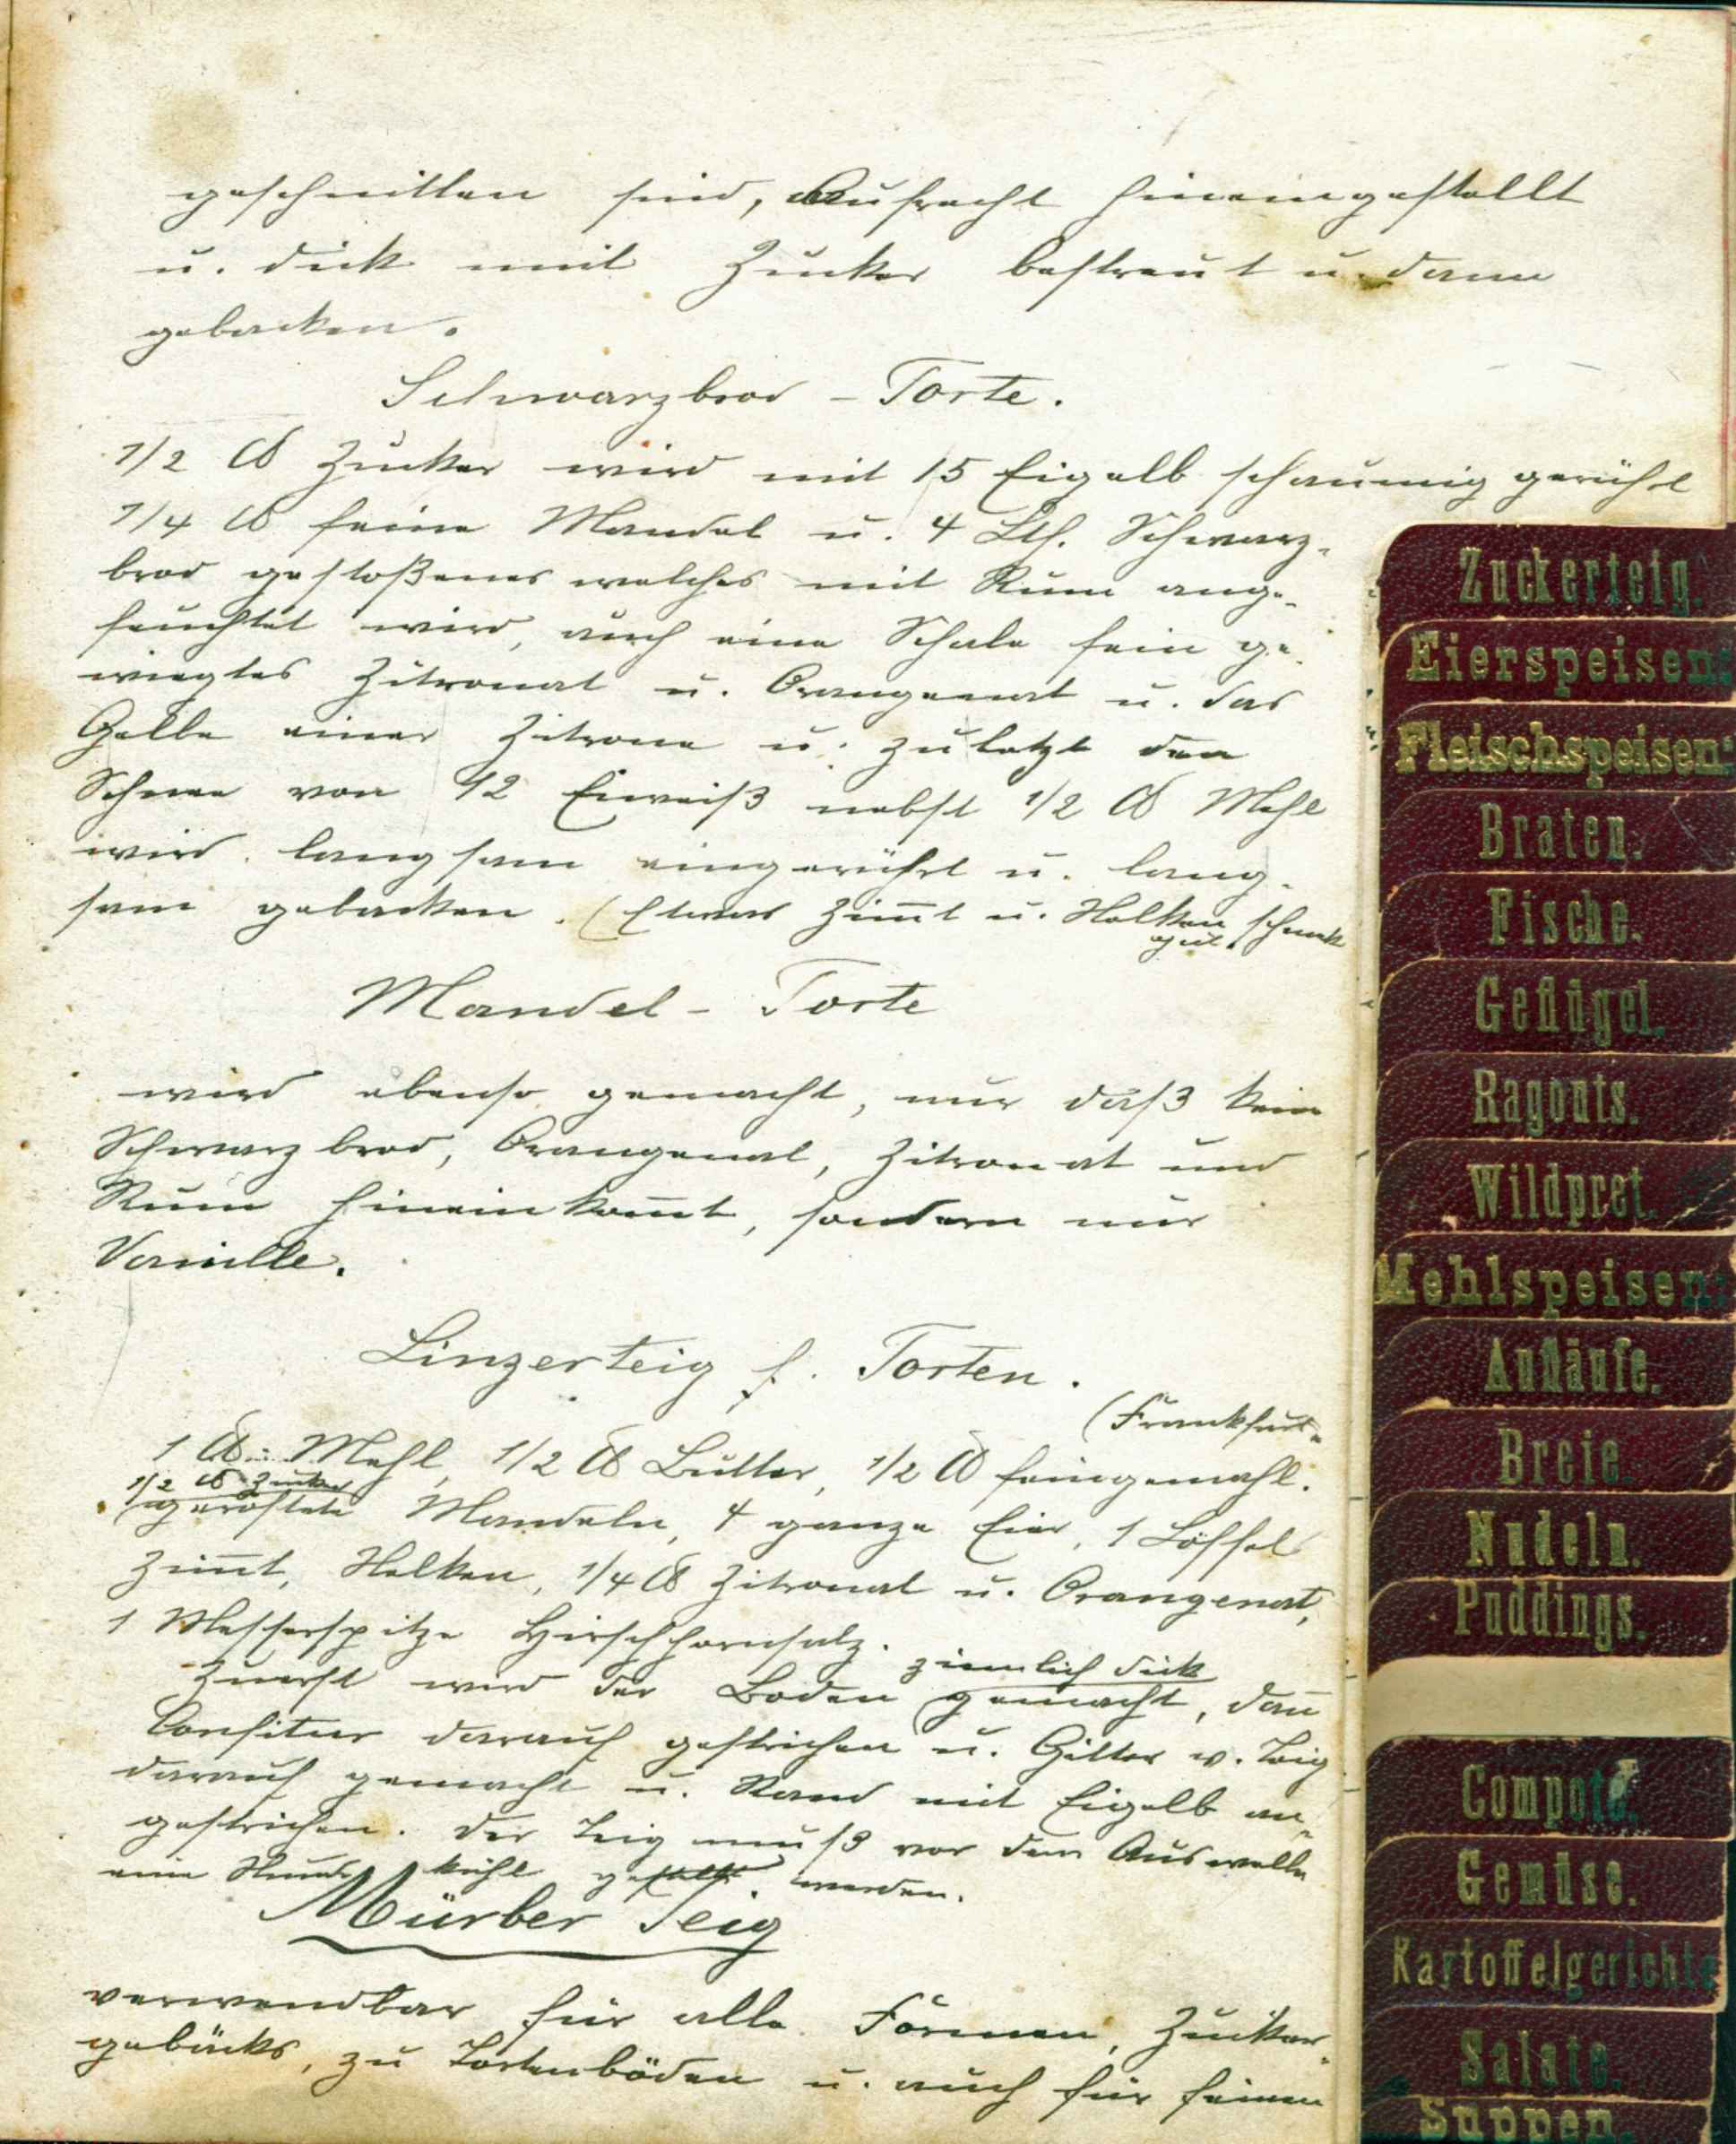 geschnitten sind, aufrecht hineingestellt
u. dick mit Zucker bestreut u. dann
gebacken.
Schwarzbrod - Torte.
1/2 ℔ Zucker wird mit 15 Eigelb schaumig gerührt
1/4 ℔ feine Mandel u. 4 Lth. Schwarz-
brod gestoßenes welches mit Rum ange-
feuchtet wird, auch eine Schale fein ge-
wiegtes Zitronat u. Orangenat u. das
Gelbe einer Zitrone u. zuletzt den
Schnee von 12 Eiweiß nebst 1/2 ℔ Mehl
wird langsam eingerührt u. lang-
sam gebacken. (Etwas Zim̅t u. Nelken schmeckt
gut.
Mandel - Torte
wird ebenso gemacht, nur daß kein
Schwarzbrod, Orangenat, Zitronat und
Rum hineinkom̅t, sondern nur
Vanille.
Linzerteig f. Torten.
(Frankfurt-
1 ℔ Mehl, 1/2 ℔ Butter, 1/2 ℔ feingemahl.
1/2 ℔ Zucker
geröstete Mandeln, 4 ganze Eier, 1 Löffel
Zim̅t, Nelken, 1/4 ℔ Zitronat u. Orangenat,
1 Messerspitze Hirschhornsalz.
ziemlich dick
Zuerst wird der Boden gemacht, dan̅
Confitur darauf gestrichen u. Gitter v. Teig
darauf gemacht u. Rand mit Eigelb an-
gestrichen. Der Teig muß vor dem Auswelln
eine Stunde kühl gestellt werden.
Mürber Teig
verwendbar für alle Formen, Zucker-
gebäcks, zu Tortenböden u. auch für feinen
Zuckerteig.
Eierspeisen:
Fleischspeisen:
Braten.
Fische.
Geflügel.
Ragouts.
Wildpret.
Mehlspeisen:
Aufläufe.
Breie.
Nudeln.
Puddings.
Compote.
Gemüse.
Kartoffelgerichte
Salate.
Suppen.